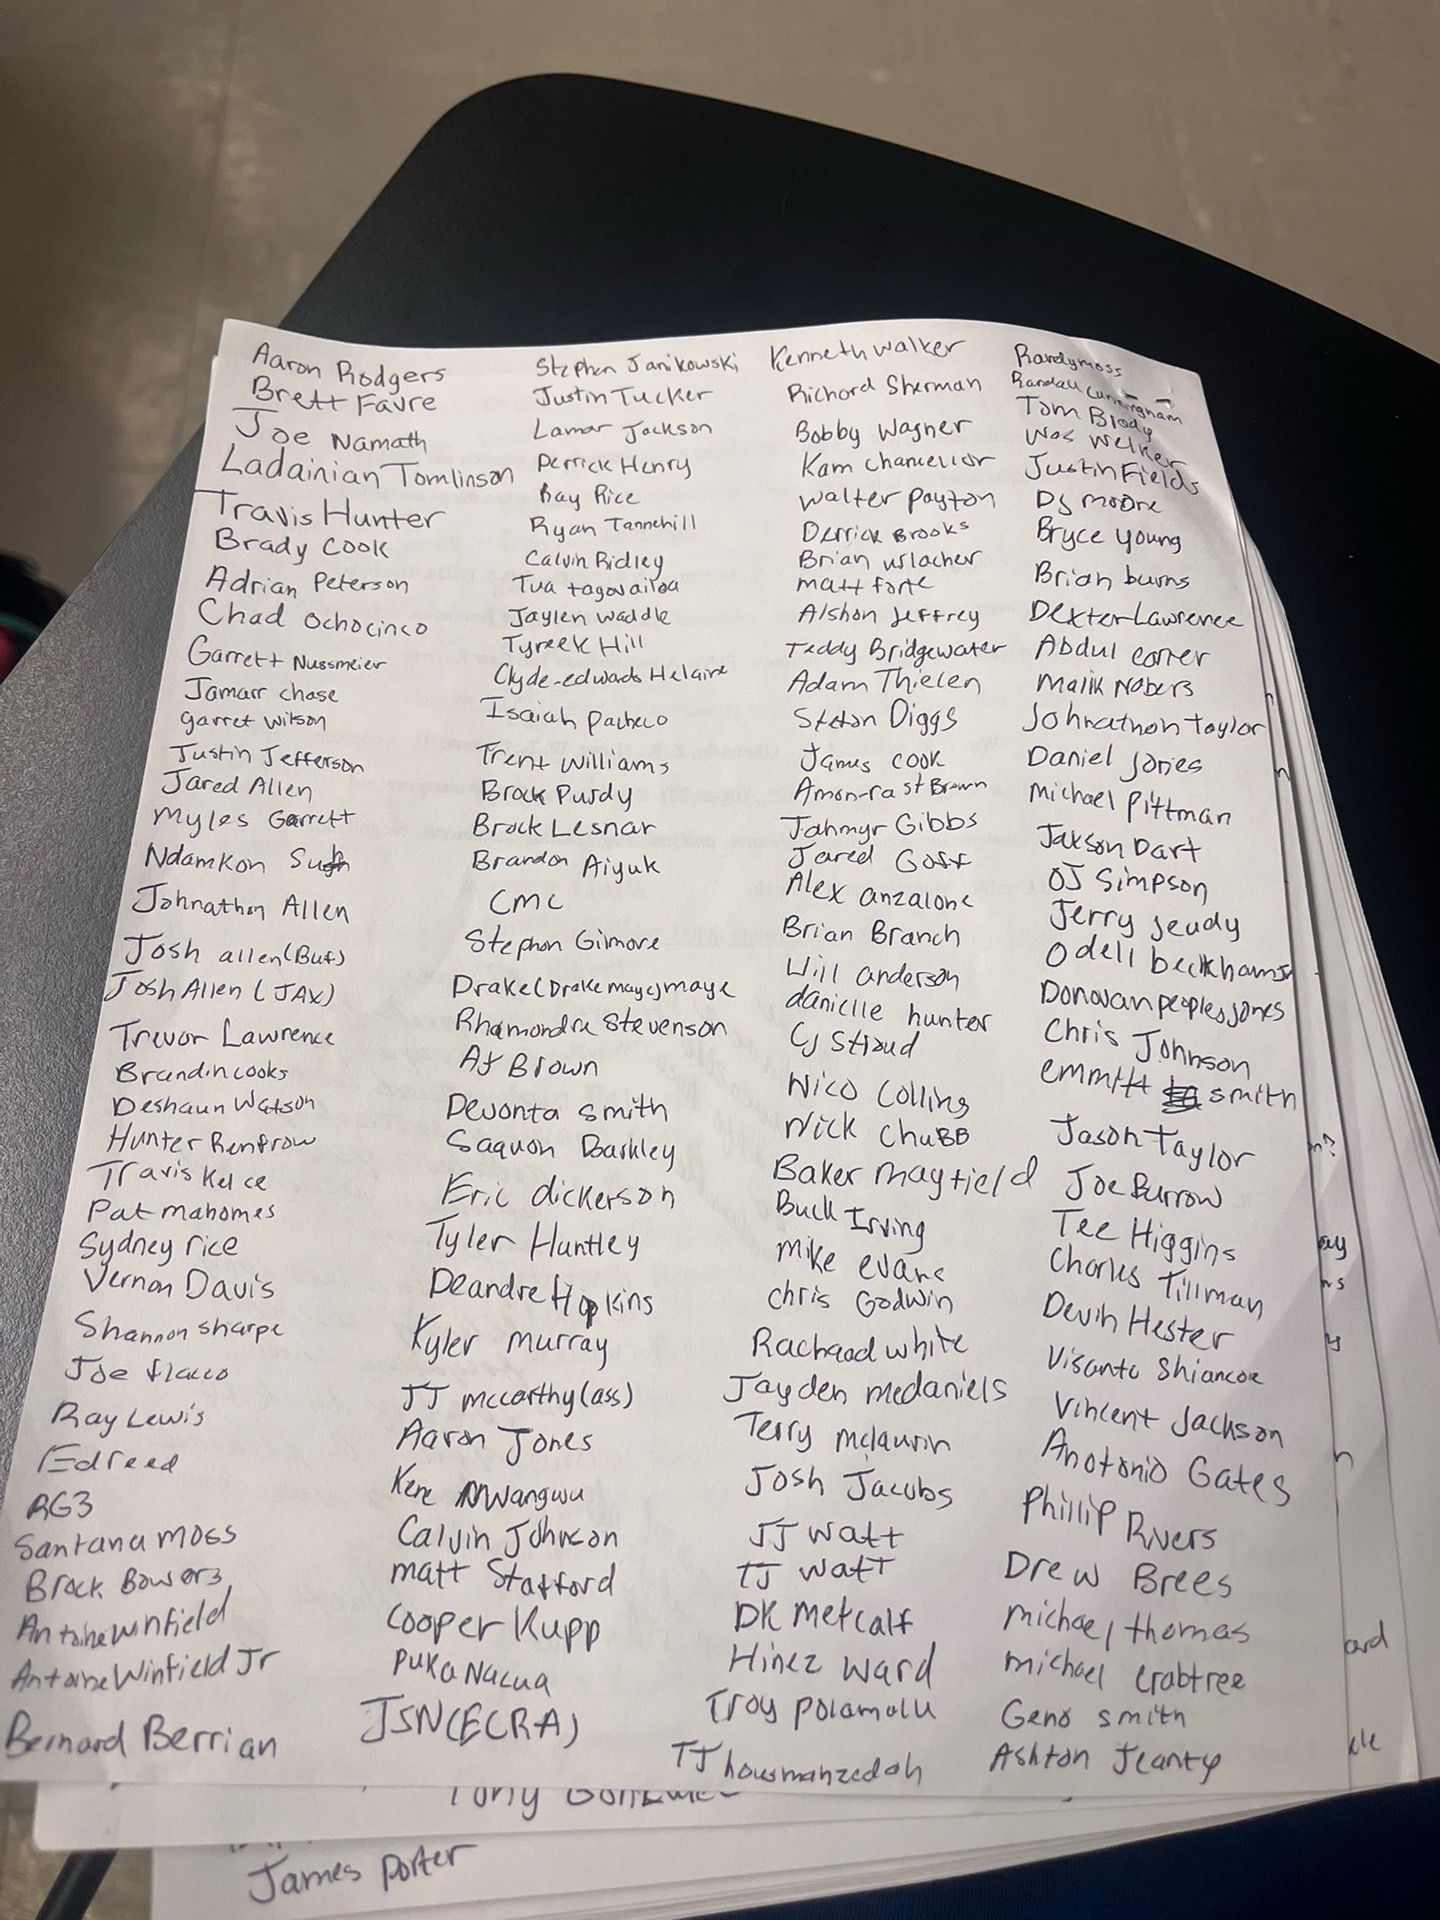 Aaron Rodgers
Brett Favre
Joe Namath
Ladainian Tomlinson
Travis Hunter
Brady Cook
Adrian Peterson
Chad Ochocinco
Garrett Nussmeier
Jamarr chase
garret wilson
Justin Jefferson
Jared Allen
Myles Garrett
Ndamkon Suh
Johnathon Allen
Josh allen (Buf)
Josh Allen (JAX)
Trevor Lawrence
Brandin cooks
Deshaun Watson
Hunter Renfrow
Travis Kelce
Pat mahomes
Sydney rice
Vernon Davis
Shannon sharpe
Joe flacco
Ray Lewis
Ed reed
RG3
Santana moss
Brock Bowers
Antoine winfield
Antoine Winfield Jr
Bernard Berrian
Stephen Janikowski
Justin Tucker
Lamar Jackson
Derrick Henry
Ray Rice
Ryan Tannehill
Calvin Ridley
Tua tagovailoa
Jaylen waddle
Tyreek Hill
Clyde-edwads Helaire
Isaiah pacheco
Trent williams
Brock Purdy
Brock Lesnar
Brandon Aiyuk
CMC
Stephon Gilmore
Drake (Drake maye) maye
Rhamondre Stevenson
AJ Brown
Devonta smith
Saquon Barkley
Eric dickerson
Tyler Huntley
Deandre Hopkins
Kyler murray
JJ mccarthy (ass)
Aaron Jones
Kene Nwangwu
Calvin Johnson
matt Stafford
Cooper Kupp
PUKA Nacua
JSN (ECRA)
Kenneth walker
Richard Sherman
Bobby Wagner
Kam chancellor
walter payton
Derrick Brooks
Brian urlacher
matt forte
Alshon Jeffrey
Teddy Bridgewater
Adam Thielen
Stefon Diggs
James cook
Amon-ra st Brown
Jahmyr Gibbs
Jared Goff
Alex anzalone
Brian Branch
Will anderson
danielle hunter
CJ Stroud
Nico Collins
Nick ChuBB
Baker mayfield
Buck Irving
mike evans
chris Godwin
Rachaad white
Jayden mcdaniels
Terry mclaurin
Josh Jacobs
JJ watt
TJ watt
DK Metcalf
Hinez ward
Troy polamalu
TJ housmanzedah
Randy moss
Randall cunningham
Tom Brady
Wes Welker
Justin Fields
DJ moore
Bryce young
Brian burns
Dexter Lawrence
Abdul carter
Malik Nabers
Johnathon taylor
Daniel Jones
Michael Pittman
Jaxson Dart
OJ Simpson
Jerry Jeudy
Odell beckham Jr
Donovan peoples jones
Chris Johnson
emmitt smith
Jason Taylor
Joe Burrow
Tee Higgins
Charles Tillman
Devin Hester
Visanto Shiancoe
Vincent Jackson
Anotonio Gates
Phillip Rivers
Drew Brees
michael thomas
michael crabtree
Geno smith
Ashton Jeanty
ay
ns
y
n
ard
James porter